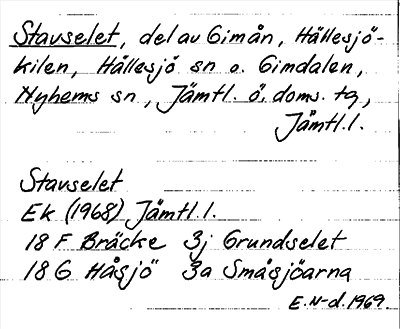 Stavselet, del av Gimån, Hällesjö-
kilen, Hällesjö sn o. Gimdalen,
Nyhems sn, Jämtl. ö. doms. tg,
Jämtl.l.
Stavselet
Ek (1968) Jämtl.l.
18 F Bräcke 3j Grundselet
18 G Håsjö 3a Småsjöarna
E.N-d. 1969